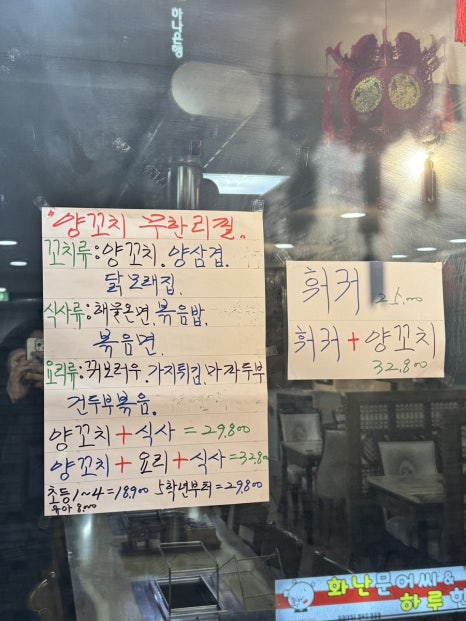 하나은행
"양꼬치 무한리필.
꼬치류:양꼬치. 양삼겹.
닭모래집.
식사류:해물온면. 볶음밥.
볶음면.
요리류:꿔보러우. 가지튀김. 마파두부
건두부볶음.
양꼬치+식사 =29,800
양꼬치+요리+식사=32,800
초등1~4=18,900 5학년부터=29,800
유아 8,000
훠궈 25,000
훠궈+양꼬치
32,800
화난문어씨&
하루한